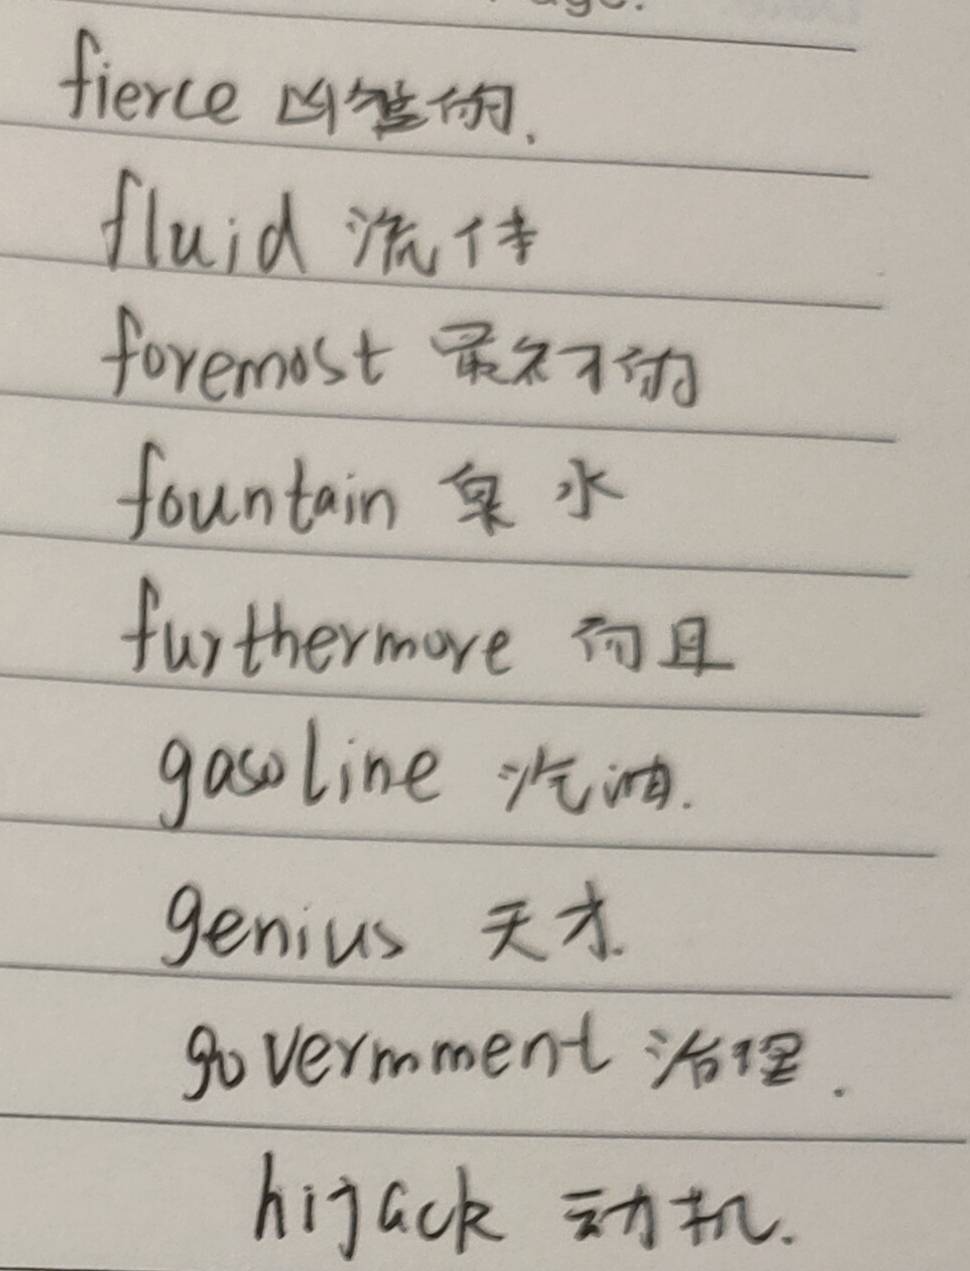 fierce 凶猛的.
fluid 流体
foremost 最初的
fountain 泉水
furthermore 而且
gasoline 汽油.
genius 天才.
govermment 治理.
hijack 动机.